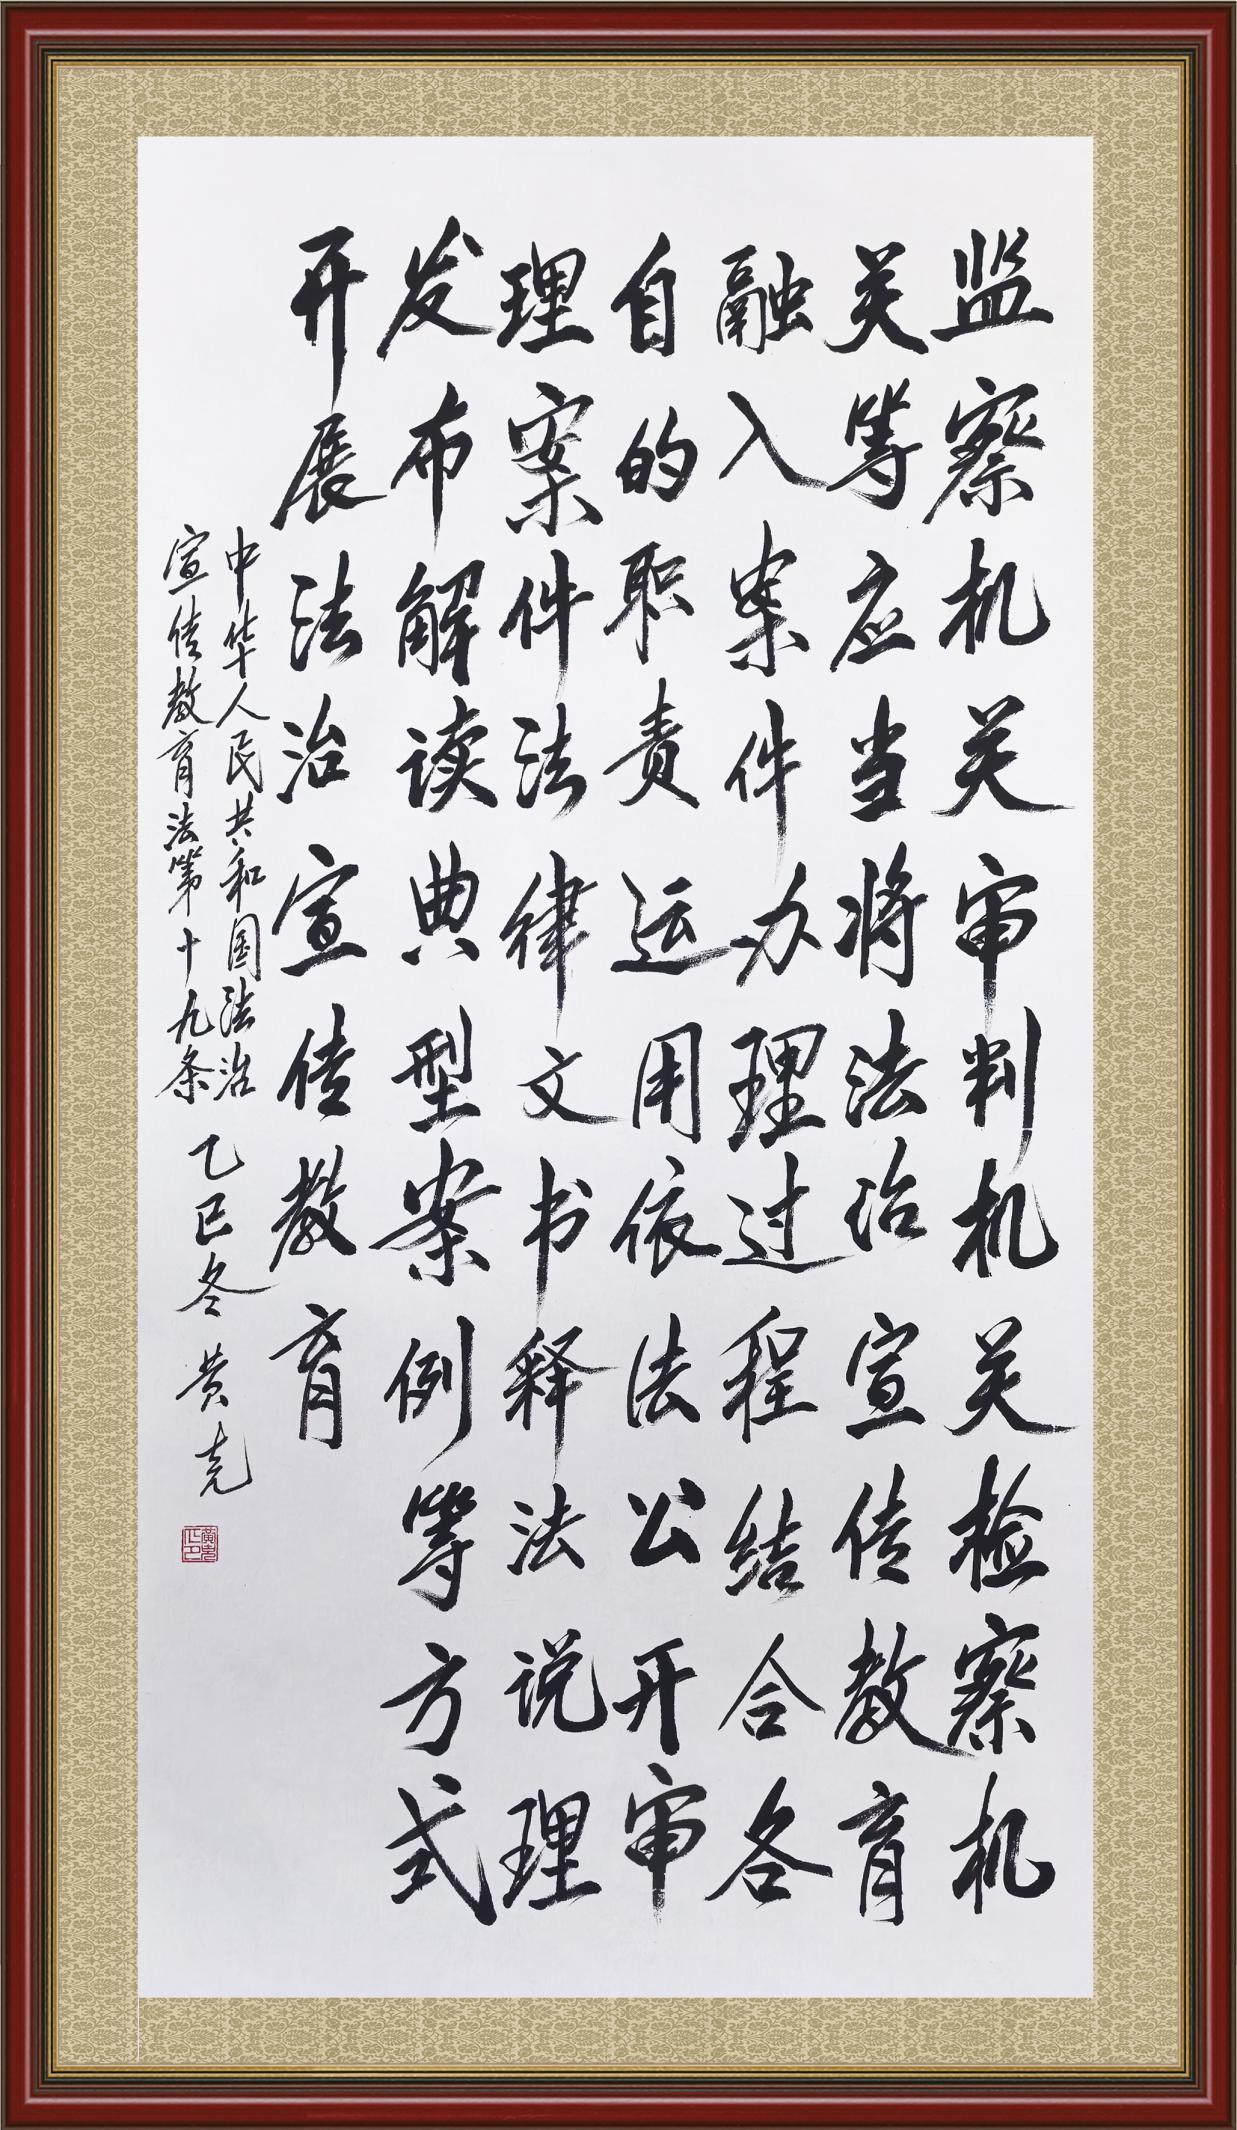 监察机关审判机关检察机
关等应当将法治宣传教育
融入案件办理过程结合各
自的职责运用依法公开审
理案件法律文书释法说理
发布解读典型案例等方式
开展法治宣传教育
中华人民共和国法治
宣传教育法第十九条
乙巳冬 黄尧